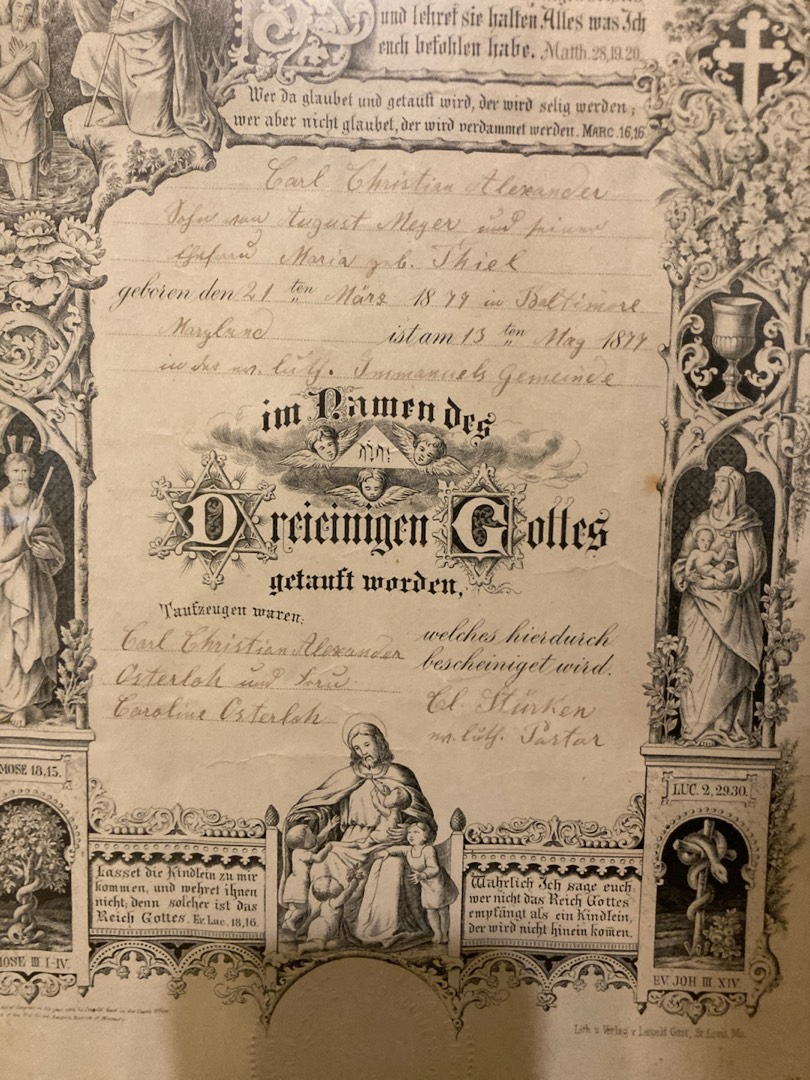 und lehret sie halten Alles was Ich
euch befohlen habe. Matth. 28,19.20.
Wer da glaubet und getauft wird, der wird selig werden;
wer aber nicht glaubet, der wird verdammet werden. MARC. 16,16.
Carl Christian Alexander
Sohn von August Meyer und seiner
Ehefrau Maria geb. Thiel
geboren den 21 ten März 1877 in Baltimore
Maryland ist am 13 ten May 1877
in der ev. luth. Immanuels Gemeinde
im Namen des
יהוה
Dreieinigen Gottes
getauft worden,
Taufzeugen waren:
Carl Christian Alexander
Osterloh und Frau
Caroline Osterloh
welches hierdurch
bescheiniget wird.
Cl. Stürken
ev. luth. Pastor
MOSE 18,15.
LUC. 2,29.30.
Lasset die Kindlein zu mir
kommen, und wehret ihnen
nicht, denn solcher ist das
Reich Gottes. Ev. Luc. 18,16.
Wahrlich Ich sage euch,
wer nicht das Reich Gottes
empfängt als ein Kindlein,
der wird nicht hinein kom̄en.
MOSE III I-IV.
EV. JOH III. XIV.
Lith. u. Verlag v. Leopold Gast, St. Louis, Mo.